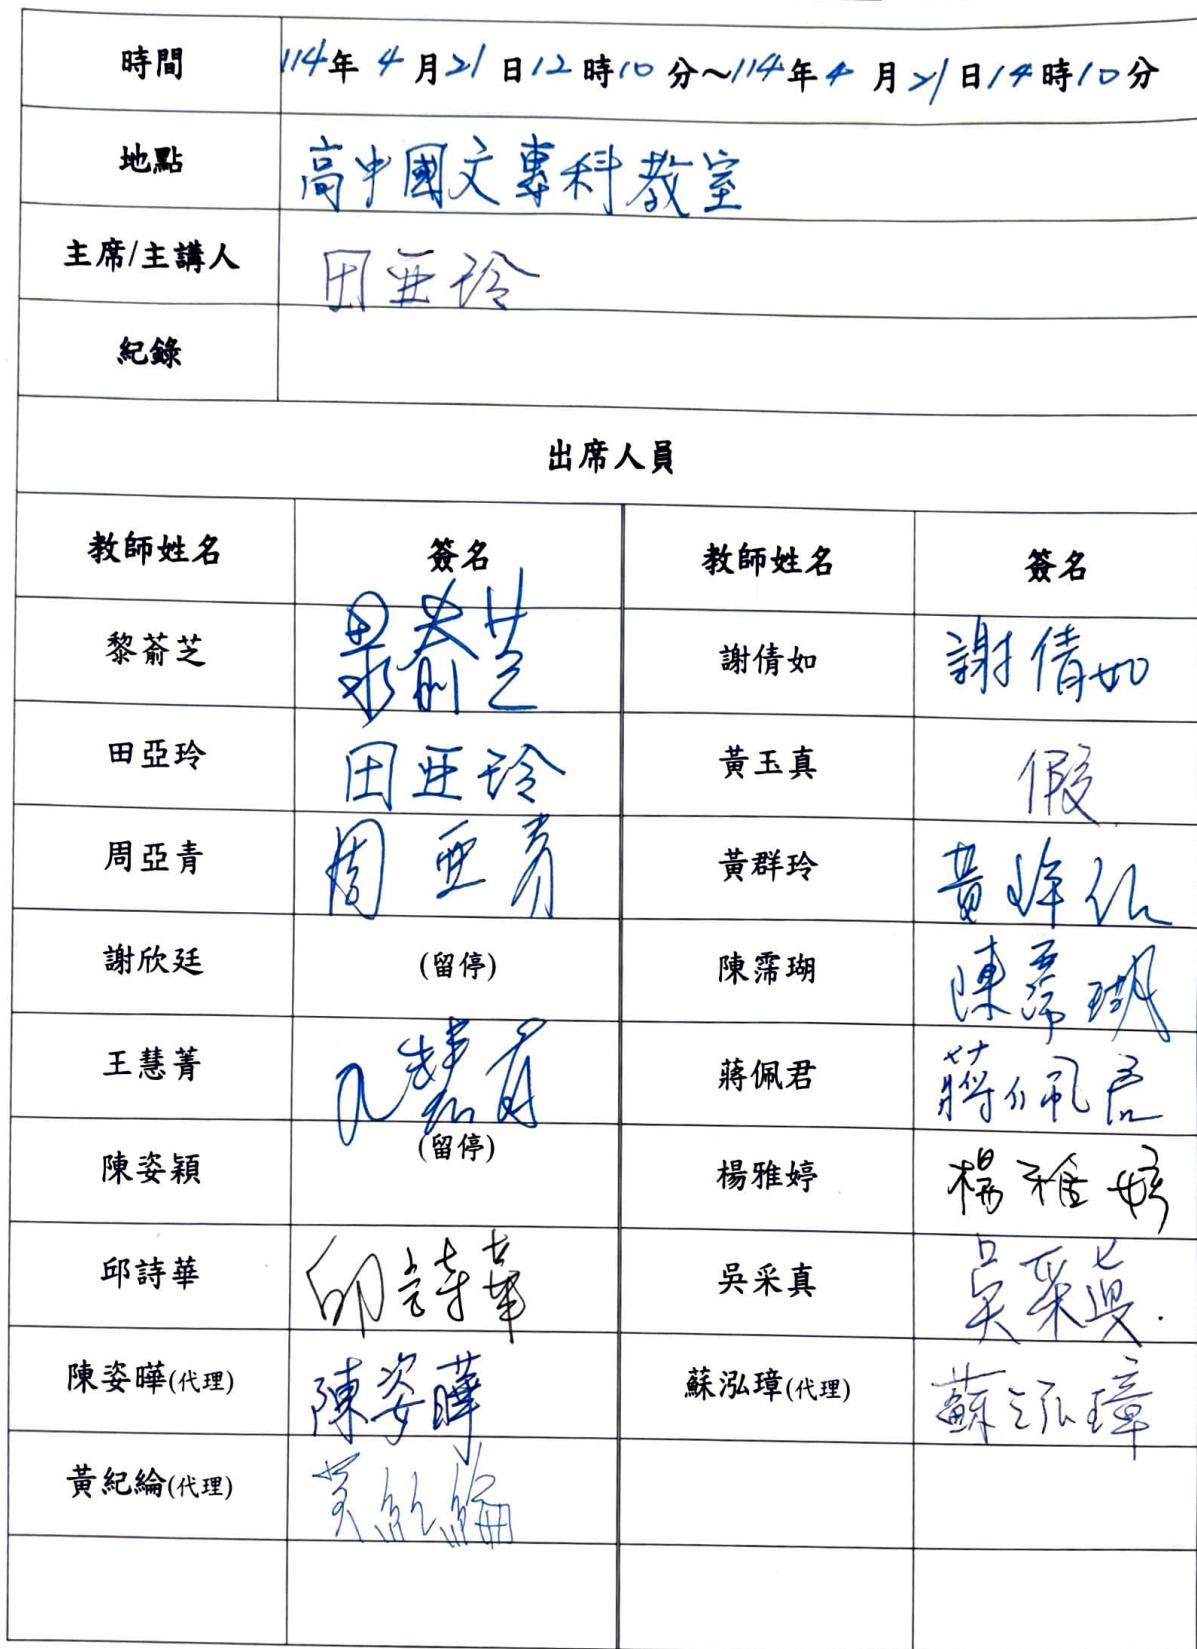 時間 114年 4 月 21 日 12 時 10 分～114年 4 月 21 日 14 時 10 分
地點 高中國文專科教室
主席/主講人 田亞玲
紀錄
出席人員
教師姓名 簽名 教師姓名 簽名
黎萮芝 黎萮芝 謝倩如 謝倩如
田亞玲 田亞玲 黃玉真 假
周亞青 周亞青 黃群玲 黃群玲
謝欣廷 (留停) 陳霈瑚 陳霈瑚
王慧菁 王慧菁 蔣佩君 蔣佩君
陳姿穎 (留停) 楊雅婷 楊雅婷
邱詩華 邱詩華 吳采真 吳采真
陳姿曄(代理) 陳姿曄 蘇泓璋(代理) 蘇泓璋
黃紀綸(代理) 黃紀綸